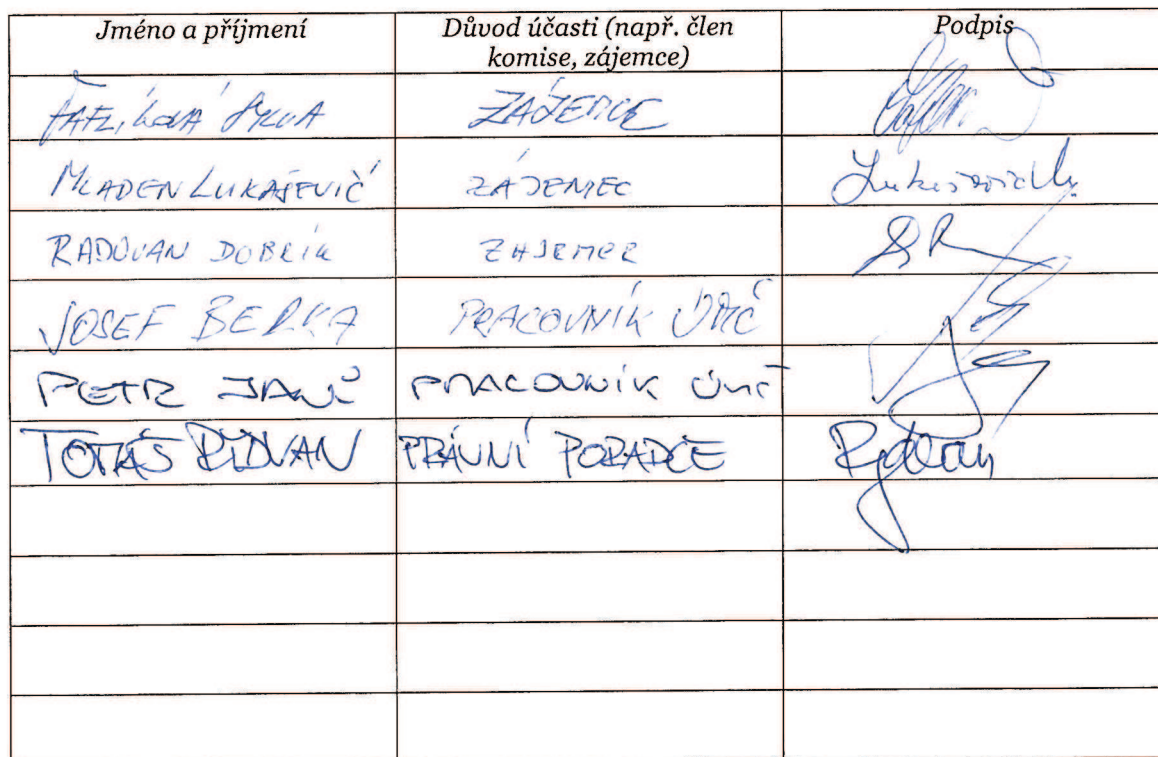 Jméno a příjmení Důvod účasti (např. člen komise, zájemce) Podpis
ZÁJEMCE
MLADEN LUKAŠEVIČ ZÁJEMEC
RADOVAN DOBRÍK ZÁJEMCE
JOSEF BERKA PRACOVNÍK ÚMČ
PETR JANŮ PRACOVNÍK ÚMČ
TOMÁŠ RYDVAN PRÁVNÍ PORADCE Rydvan